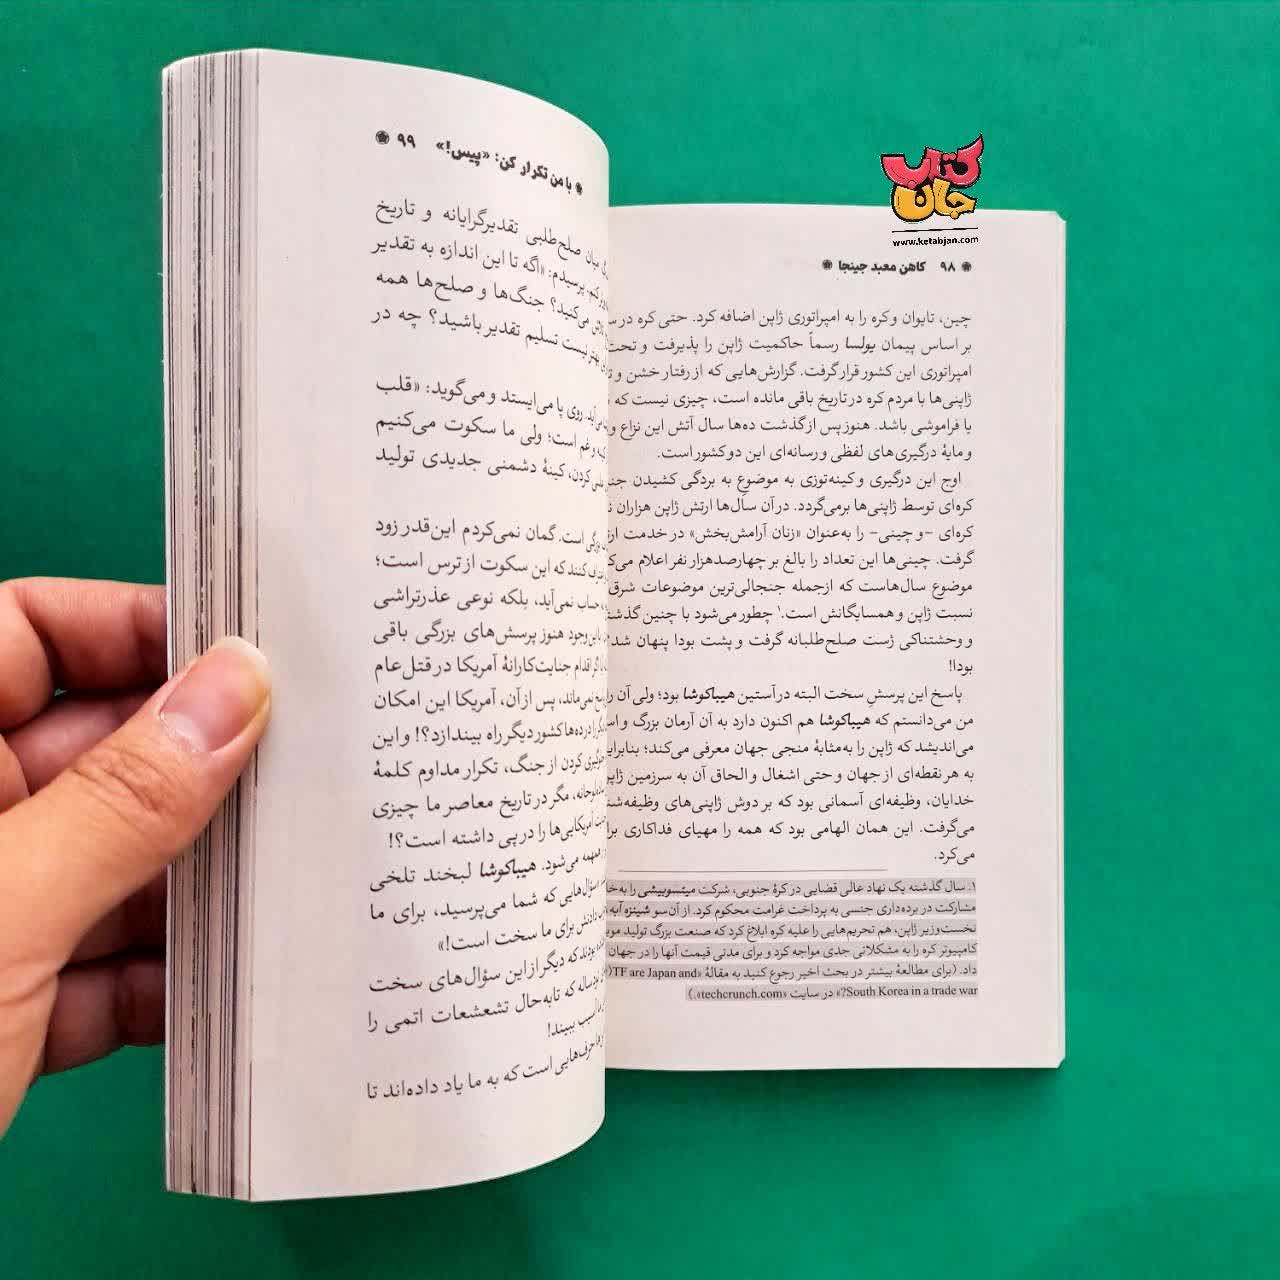 کتاب
جان
www.ketabjan.com
۹۸ کاهن معبد جینجا
چین، تایوان و کره را به امپراتوری ژاپن اضافه کرد. حتی کره در
بر اساس پیمان یولسا رسماً حاکمیت ژاپن را پذیرفت و تحت
امپراتوری این کشور قرار گرفت. گزارش‌هایی که از رفتار خشن و
ژاپنی‌ها با مردم کره در تاریخ باقی مانده است، چیزی نیست که
یا فراموشی باشد. هنوز پس از گذشت ده‌ها سال آتش این نزاع و
و مایهٔ درگیری‌های لفظی و رسانه‌ای این دو کشور است.
اوج این درگیری و کینه‌توزی به موضوع به بردگی کشیدن
کره‌ای توسط ژاپنی‌ها برمی‌گردد. در آن سال‌ها ارتش ژاپن هزاران
کره‌ای -و چینی- را به‌عنوان «زنان آرامش‌بخش» در خدمت
گرفت. چینی‌ها این تعداد را بالغ بر چهارصدهزار نفر اعلام
موضوع سال‌هاست که ازجمله جنجالی‌ترین موضوعات شرق
نسبت ژاپن و همسایگانش است.۱ چطور می‌شود با چنین
و وحشتناکی ژست صلح‌طلبانه گرفت و پشت بودا پنهان
بودا!
پاسخ این پرسشِ سخت البته در آستین هیباکوشا بود؛ ولی آن
من می‌دانستم که هیباکوشا هم اکنون دارد به آن آرمان بزرگ و
می‌اندیشد که ژاپن را به‌مثابهٔ منجی جهان معرفی می‌کند؛ بنابراین
به هر نقطه‌ای از جهان و حتی اشغال و الحاق آن به سرزمین
خدایان، وظیفه‌ای آسمانی بود که بر دوش ژاپنی‌های
می‌گرفت. این همان الهامی بود که همه را مهیای فداکاری
می‌کرد.
۱. سال گذشته یک نهاد عالی قضایی در کرهٔ جنوبی، شرکت میتسوبیشی را
مشارکت در برده‌داری جنسی به پرداخت غرامت محکوم کرد. از آن‌سو شینزه آبه
نخست‌وزیر ژاپن، هم تحریم‌هایی را علیه کره ابلاغ کرد که صنعت بزرگ تولید
کامپیوتر کره را به مشکلاتی جدی مواجه کرد و برای مدتی قیمت آنها را در جهان
داد. (برای مطالعهٔ بیشتر در بحث اخیر رجوع کنید به مقالهٔ «TF are Japan and
South Korea in a trade war?» در سایت «techcrunch.com».)
با من تکرار کن: «پیس!» ۹۹
میان صلح‌طلبی تقدیرگرایانه و تاریخ
کنم. پرسیدم: «اگه تا این اندازه به تقدیر
می‌کنید؟ جنگ‌ها و صلح‌ها همه
بهتر نیست تسلیم تقدیر باشید؟ چه در
روی پا می‌ایستد و می‌گوید: «قلب
و غم است؛ ولی ما سکوت می‌کنیم
کردن، کینهٔ دشمنی جدیدی تولید
بزرگی است. گمان نمی‌کردم این‌قدر زود
کنند که این سکوت از ترس است؛
حساب نمی‌آید، بلکه نوعی عذرتراشی
وجود هنوز پرسش‌های بزرگی باقی
اقدام جنایت‌کارانهٔ آمریکا در قتل‌عام
نمی‌ماند، پس از آن، آمریکا این امکان
را در ده‌ها کشور دیگر راه بیندازد؟! و این
کردن از جنگ، تکرار مداوم کلمهٔ
مگر در تاریخ معاصر ما چیزی
آمریکایی‌ها را در پی داشته است؟!
همهمه می‌شود. هیباکوشا لبخند تلخی
سؤال‌هایی که شما می‌پرسید، برای ما
دادنش برای ما سخت است!»
بودند که دیگر از این سؤال‌های سخت
که تابه‌حال تشعشعات اتمی را
آسیب ببیند!
حرف‌هایی است که به ما یاد داده‌اند تا